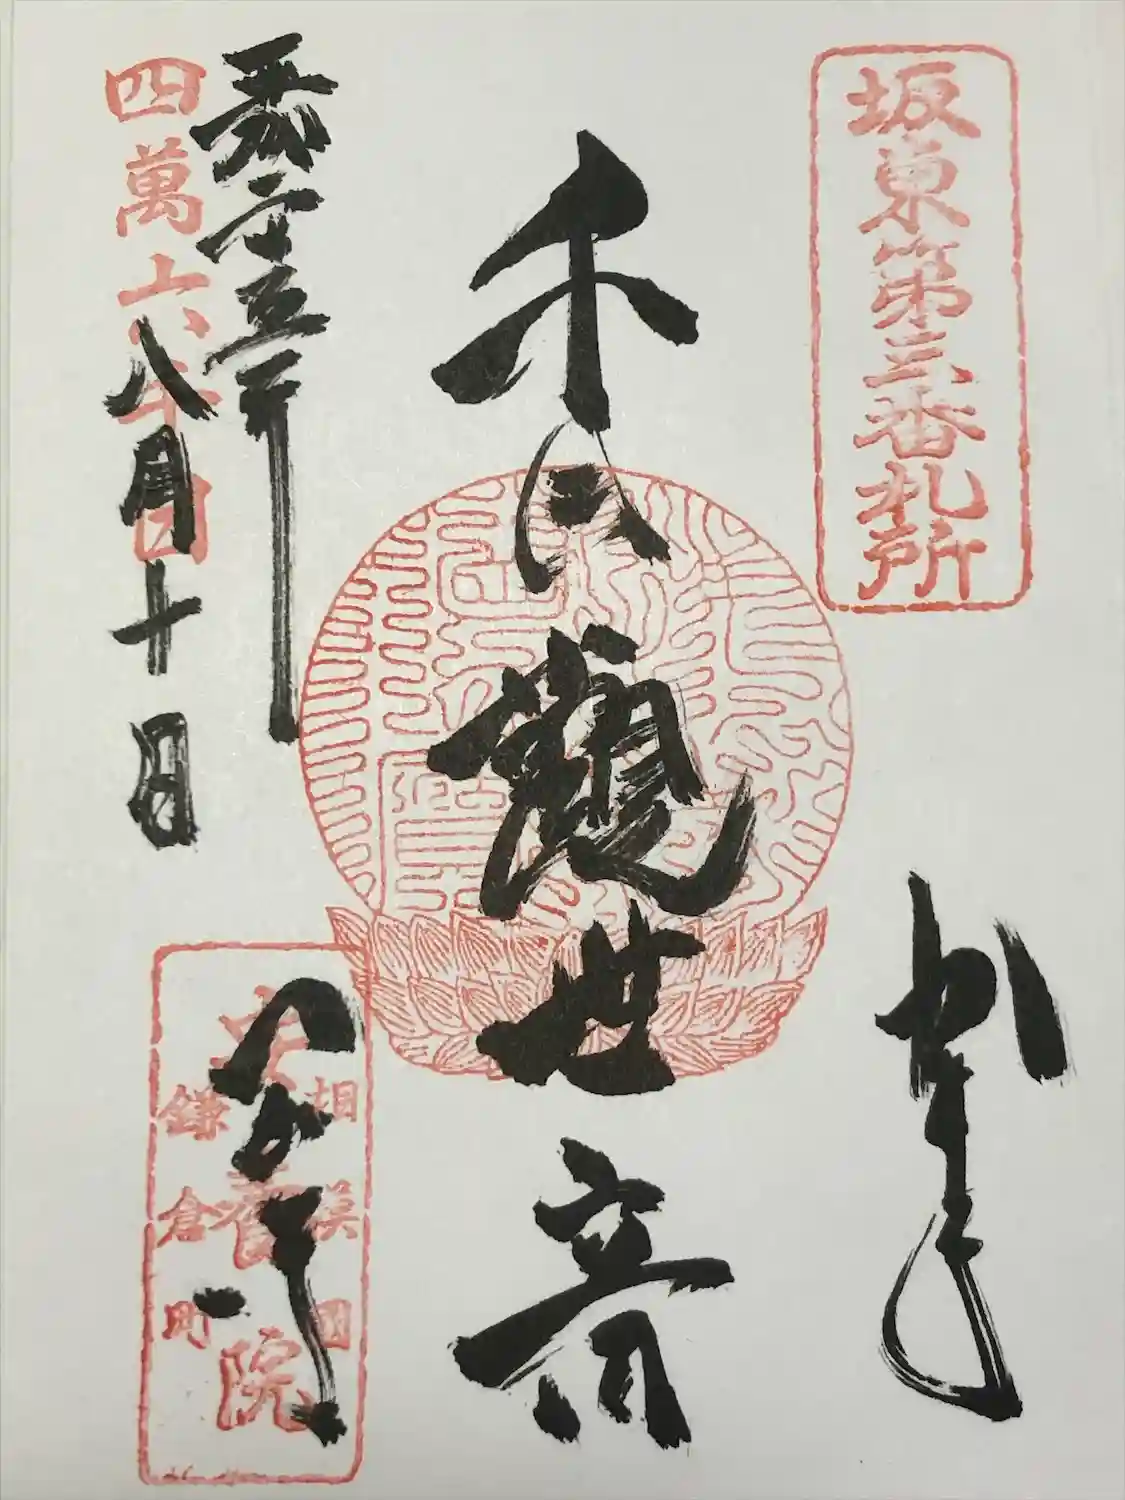 坂東第三番札所
千手觀世音
四萬六千日
平成二十五年
八月十日
相模国
安養院
鎌倉町